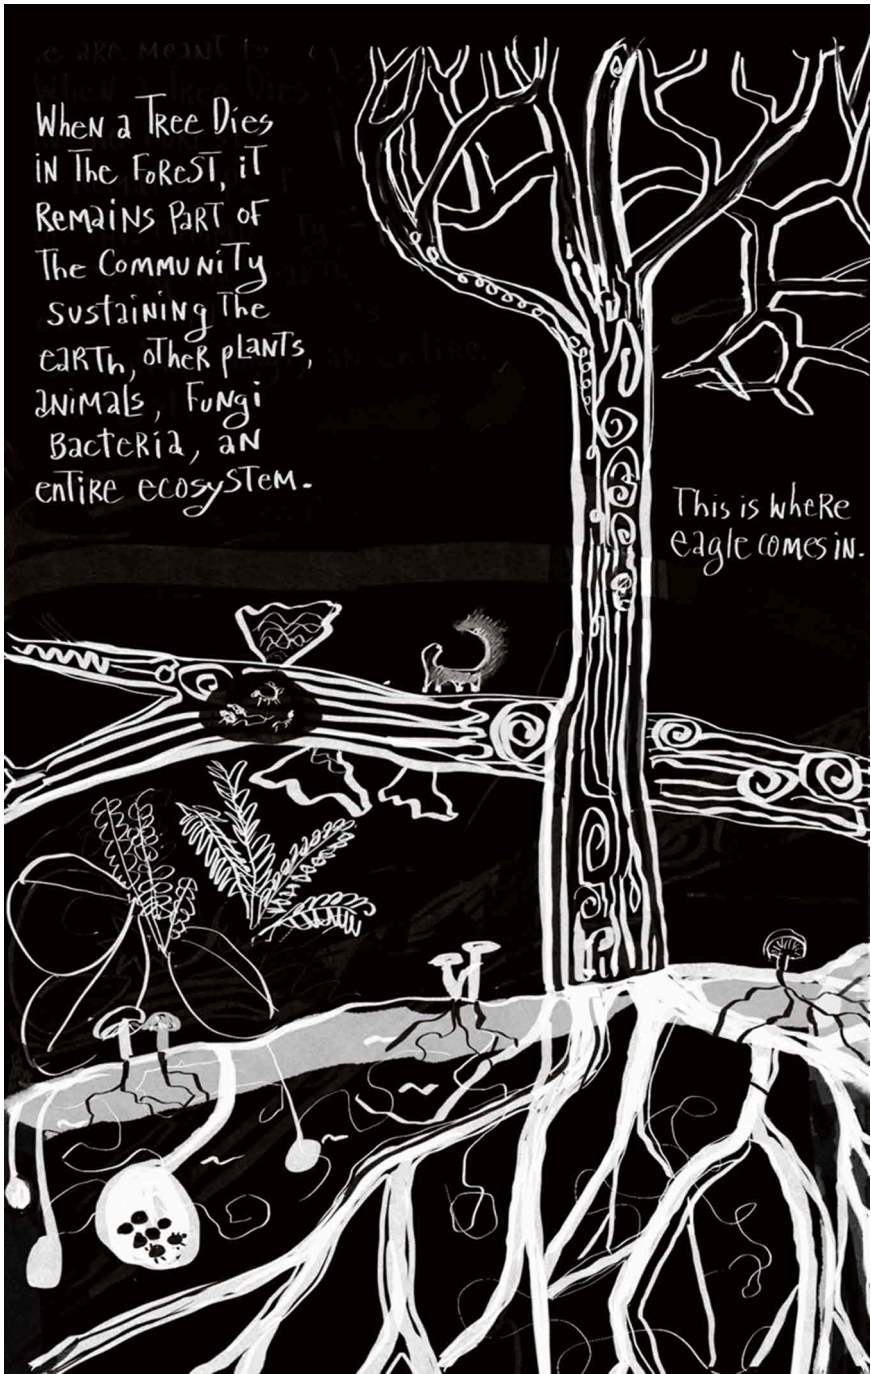 When a Tree Dies
in The Forest, it
Remains Part of
The Community
sustaining The
earth, other plants,
animals, Fungi
Bacteria, an
entire ecosystem.
This is where
eagle comes in.